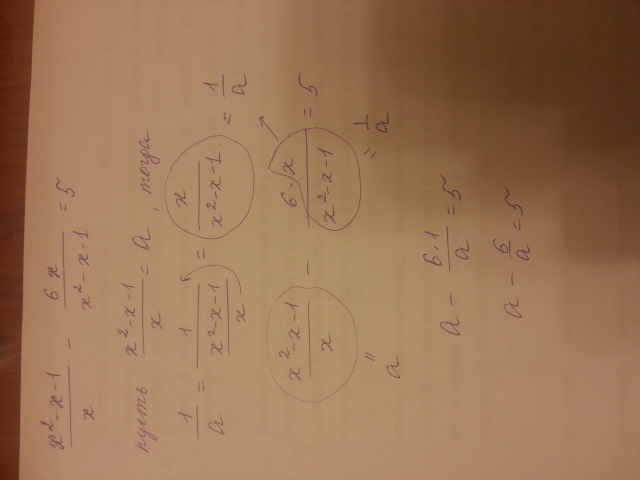 (x²-x-1)/x - 6x/(x²-x-1) = 5
пусть (x²-x-1)/x = a, тогда
1/a = 1/((x²-x-1)/x) = x/(x²-x-1) = 1/a
(x²-x-1)/x - 6·x/(x²-x-1) = 5
= a = 1/a
a - 6·1/a = 5
a - 6/a = 5